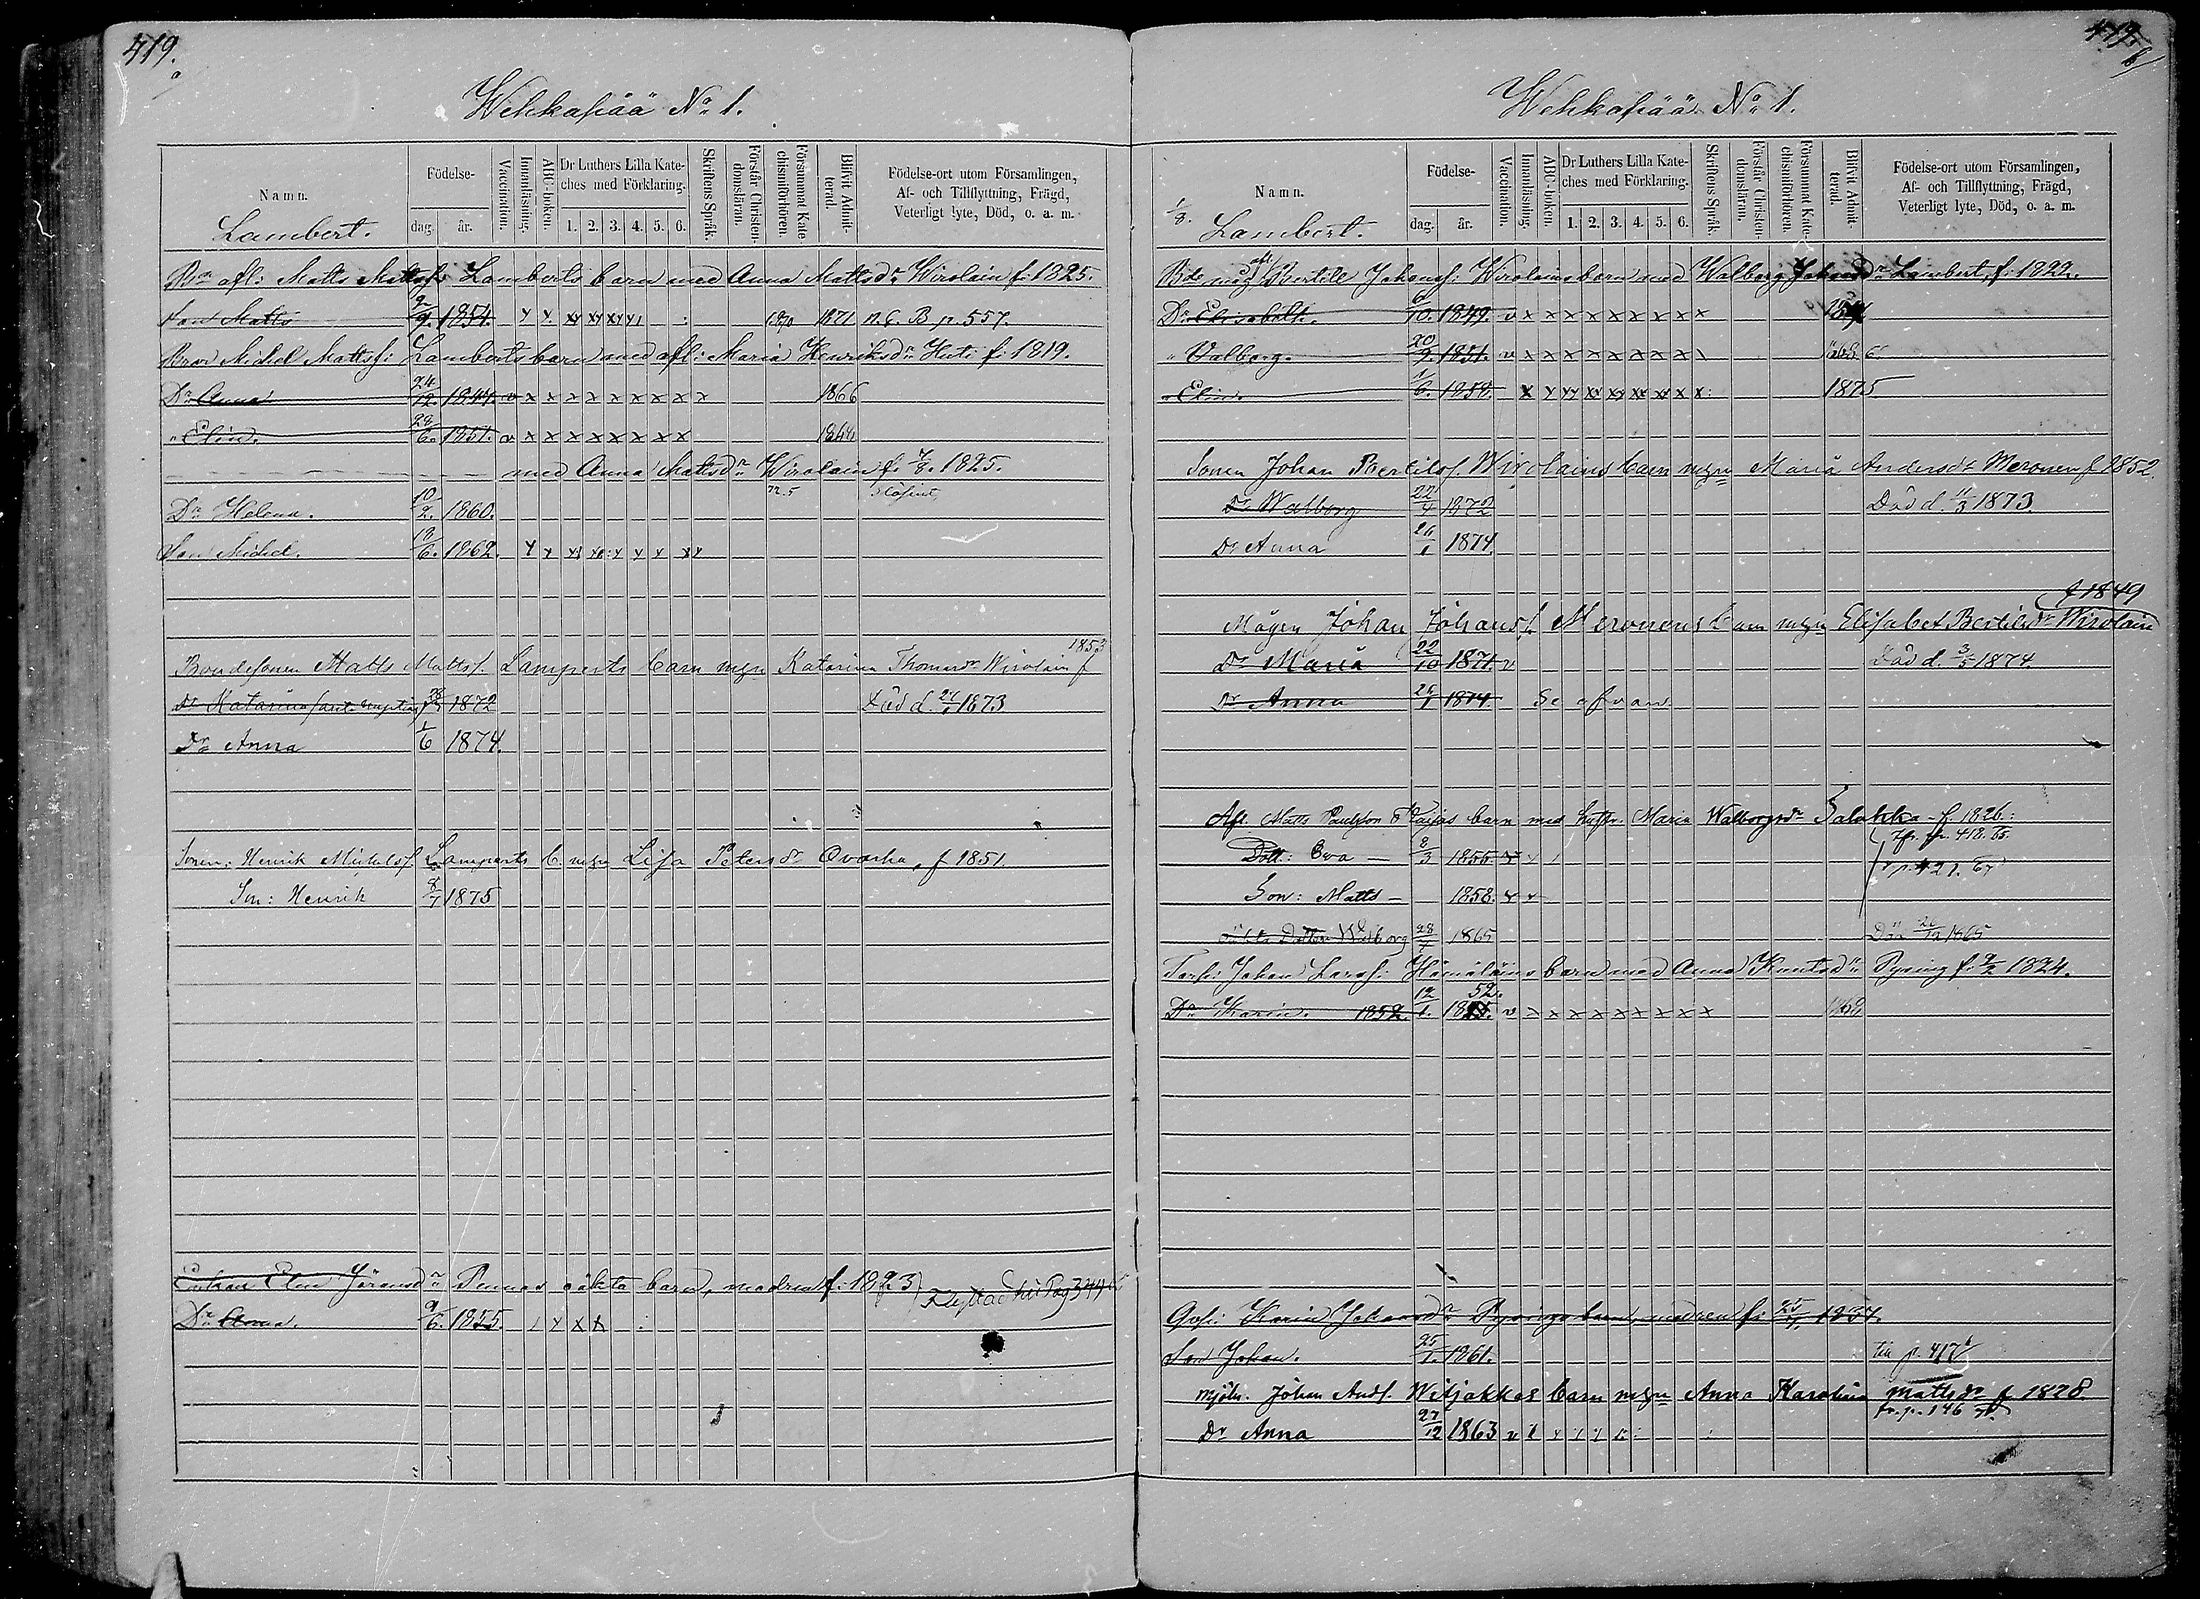 419.
a
Wehkapää No 1.
Namn.
Födelse-
dag.
år.
Vaccination.
Innanläsning.
ABC-boken.
Dr Luthers Lilla Kate-
ches med Förklaring.
1. 2. 3. 4. 5. 6.
Skriftens Språk.
Förstår Christen-
domsläran.
Försummat Kate
chismiförhören.
Blifvit Admit-
terad.
Födelse-ort utom Församlingen,
Af- och Tillflyttning, Frägd,
Veterligt lyte, Död, o. a. m.
Lambert.
Bn afl: Matts Mattsf: Lamberts barn med Anna Mattsdr Wirolain f: 1825.
Son Matts 9/9. 1854. 1870 1871 n. C. B p. 557.
Bror Michel Mattsf: Lamberts barn med afl: Maria Henriksdr Huti f: 1819.
Dr Anna 24/12. 1844. v x x x x x x x x x 1866
" Elin. 28/6. 1851. v x x x x x x x x 1868
med Anna Mattsdr Wirolain f. 1825.
Dr Helena. 10/2. 1860.
Son Michel. 18/6. 1862.
Bondesonen Matts Mattsf. Lamperts barn mgn Katarina Thomasdr Wirolain f 1853
Dr Katarina 1872 Död d. 1873
Dr Anna 1/6 1874.
Sonen: Henrik Michelsf. Lamperts b. mgn Lisa Petersdr Ovaska, f 1851.
Son: Henrik 8/7 1875
Enkan Elin Jöransdr Pennas oäkta barn, modren f: 1823 Flyttad till Pag 349
Dr Anna. 9/6. 1855.
419.
b
Wehkapää No 1.
Namn.
Födelse-
dag.
år.
Vaccination.
Innanläsning
ABC-boken.
Dr Luthers Lilla Kate-
ches med Förklaring.
1. 2. 3. 4. 5. 6.
Skriftens Språk.
Förstår Christen-
domsläran.
Försummat Kate-
chismiförhören.
Blifvit Admit-
terad.
Födelse-ort utom Församlingen,
Af- och Tillflyttning, Frägd,
Veterligt lyte, Död, o. a. m.
1/8. Lambert.
Bds måg afl Bertill Johansf: Wirolains barn med Walborg Johansdr Lambert, f: 1822.
Dr Elisabeth. 6/10. 1849. v x x x x x x x x x
" Valborg. 20/9. 1851. v x x x x x x x x
" Elin. 1/6. 1858. 1875
Sonen Johan Bertilsf. Wirolains barn mgn Maria Andersdr Meronen f 1852
Dr Walborg 22/4 1872 Död d. 11/3 1873
Dr Anna 26/1 1874
f 1849
Mågen Johan Johansf. Meronens barn mgn Elisabet Bertilsdr Wirolain
Dr Maria 22/10 1871. v Död d. 3/5 1874
Dr Anna 26/1 1874. Se ofvan
Afl. Matts Paulsson barn med hustr. Maria Walborgsdr Salakka f. 1826.:
Fr. p. 418. 65.
Dott: Eva 8/3 1855
p. 421.
Son: Matts 1858.
oäkta Dottren Walborg 28/7 1865 Död 26/12 1865
Torp: Johan Larsf: Hämäläins barn med Anna Knutsdr Pysing f: 9/2 1824.
Dr Karin. 1852. 12/1. 52. v x x x x x x x x x 1869
Karin Johansdr Pysings barn, modren f: 1834.
Son Johan. 25/1. 1861. till p. 417 b
mjöln. Johan Andf. Witjakkas barn mgn Anna Karolina Mattsdr f 1828
fr. p. 146
Dr Anna 27/12 1863